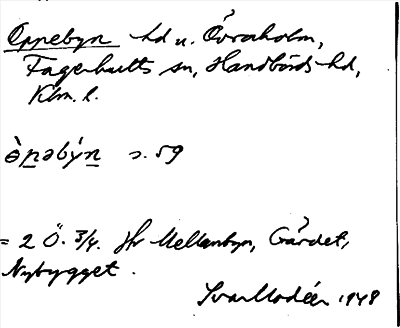 Oppebyn hd u. Övraholm,
Fagerhults sn, Handbörds hd,
Klm. l.
s. 59
= 2 Ö. 3/4. Hr Mellanbyn, Gårdet,
Nybygget.
Ivar Modéer 1948